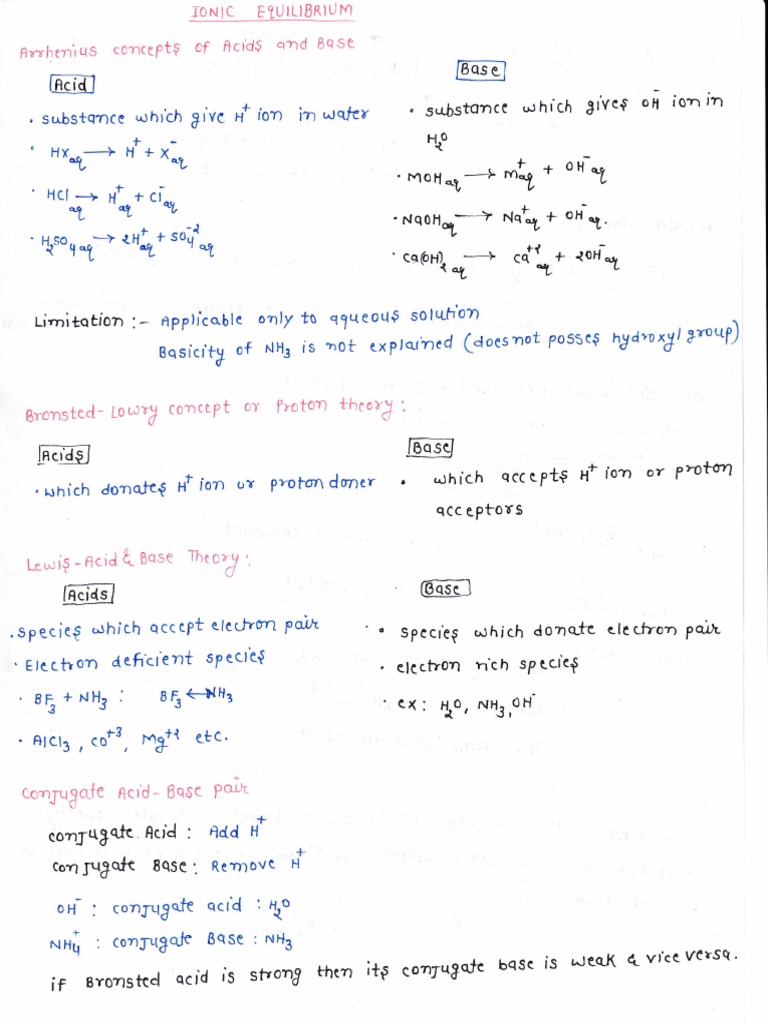 IONIC EQUILIBRIUM
Arrhenius concepts of Acids and Base
Acid
• substance which give H⁺ ion in water
• HX aq ⟶ H⁺ + X⁻ aq
• HCl aq ⟶ H⁺ aq + Cl⁻ aq
• H₂SO₄ aq ⟶ 2H⁺ aq + SO₄⁻² aq
Base
• substance which gives OH⁻ ion in
H₂O
• MOH aq ⟶ M⁺ aq + OH⁻ aq
• NaOH aq ⟶ Na⁺ aq + OH⁻ aq.
• Ca(OH)₂ aq ⟶ Ca⁺² aq + 2OH⁻ aq
Limitation :- Applicable only to aqueous solution
Basicity of NH₃ is not explained (does not posses hydroxyl group)
Bronsted-Lowry concept or Proton theory :
Acids
• which donates H⁺ ion or proton doner
Base
• which accepts H⁺ ion or proton
acceptors
Lewis-Acid & Base Theory :
Acids
• species which accept electron pair
• Electron deficient species
• BF₃ + NH₃ : BF₃ ⟵ NH₃
• AlCl₃, CO⁺³, Mg⁺² etc.
Base
• species which donate electron pair
• electron rich species
• ex : H₂O, NH₃, OH⁻
Conjugate Acid-Base pair
conjugate Acid : Add H⁺
conjugate Base : Remove H⁺
OH⁻ : conjugate acid : H₂O
NH₄⁺ : conjugate Base : NH₃
if Bronsted acid is strong then its conjugate base is weak & vice versa.